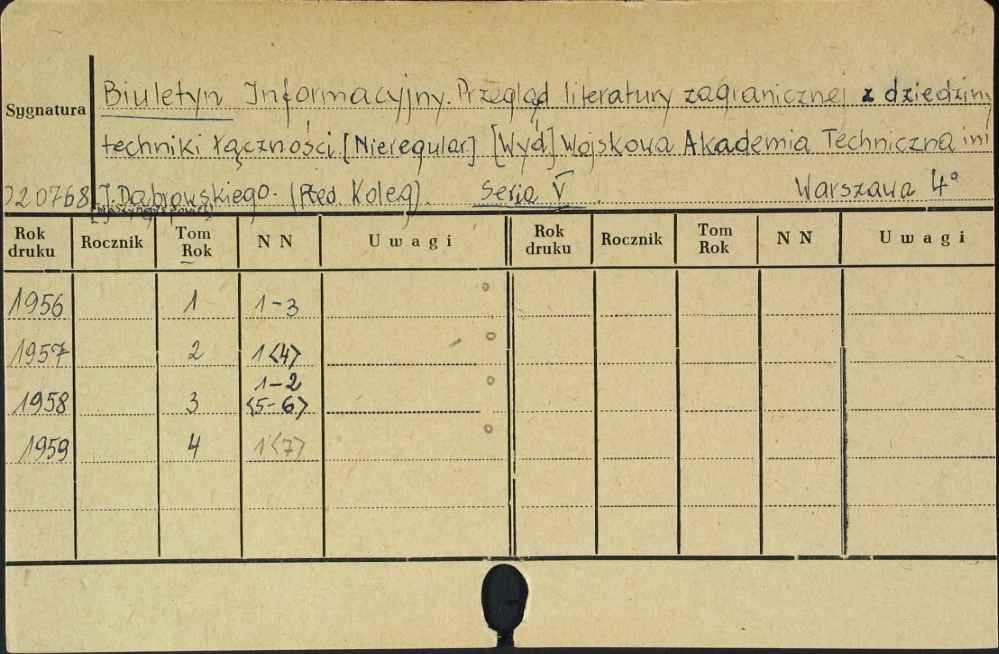 Biuletyn Informacyjny. Przegląd literatury zagranicznej z dziedziny
Sygnatura
techniki łączności [Nieregular] [Wyd] Wojskowa Akademia Techniczna im
020768 J. Dąbrowskiego. (Red. Koleg). Seria V. Warszawa 4°
Rok druku Rocznik Tom Rok N N Uwagi Rok druku Rocznik Tom Rok N N Uwagi
1956 1 1-3
1957 2 1<4>
1-2
1958 3 <5-6>
1959 4 1<7>